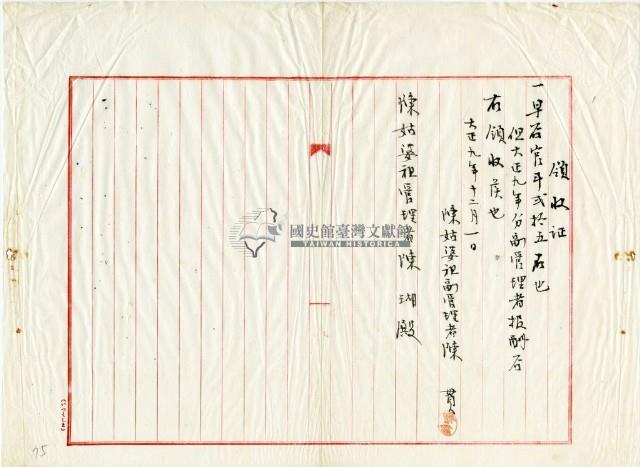 領收証
一早谷官斗弍拾五石也
但大正九年分副管理者报酬谷
右領收候也
大正九年十二月一日
陳姑婆祖副管理者陳 貫
陳姑婆祖管理者陳 瑚殿
國史館臺灣文獻館
TAIWAN HISTORICA
75